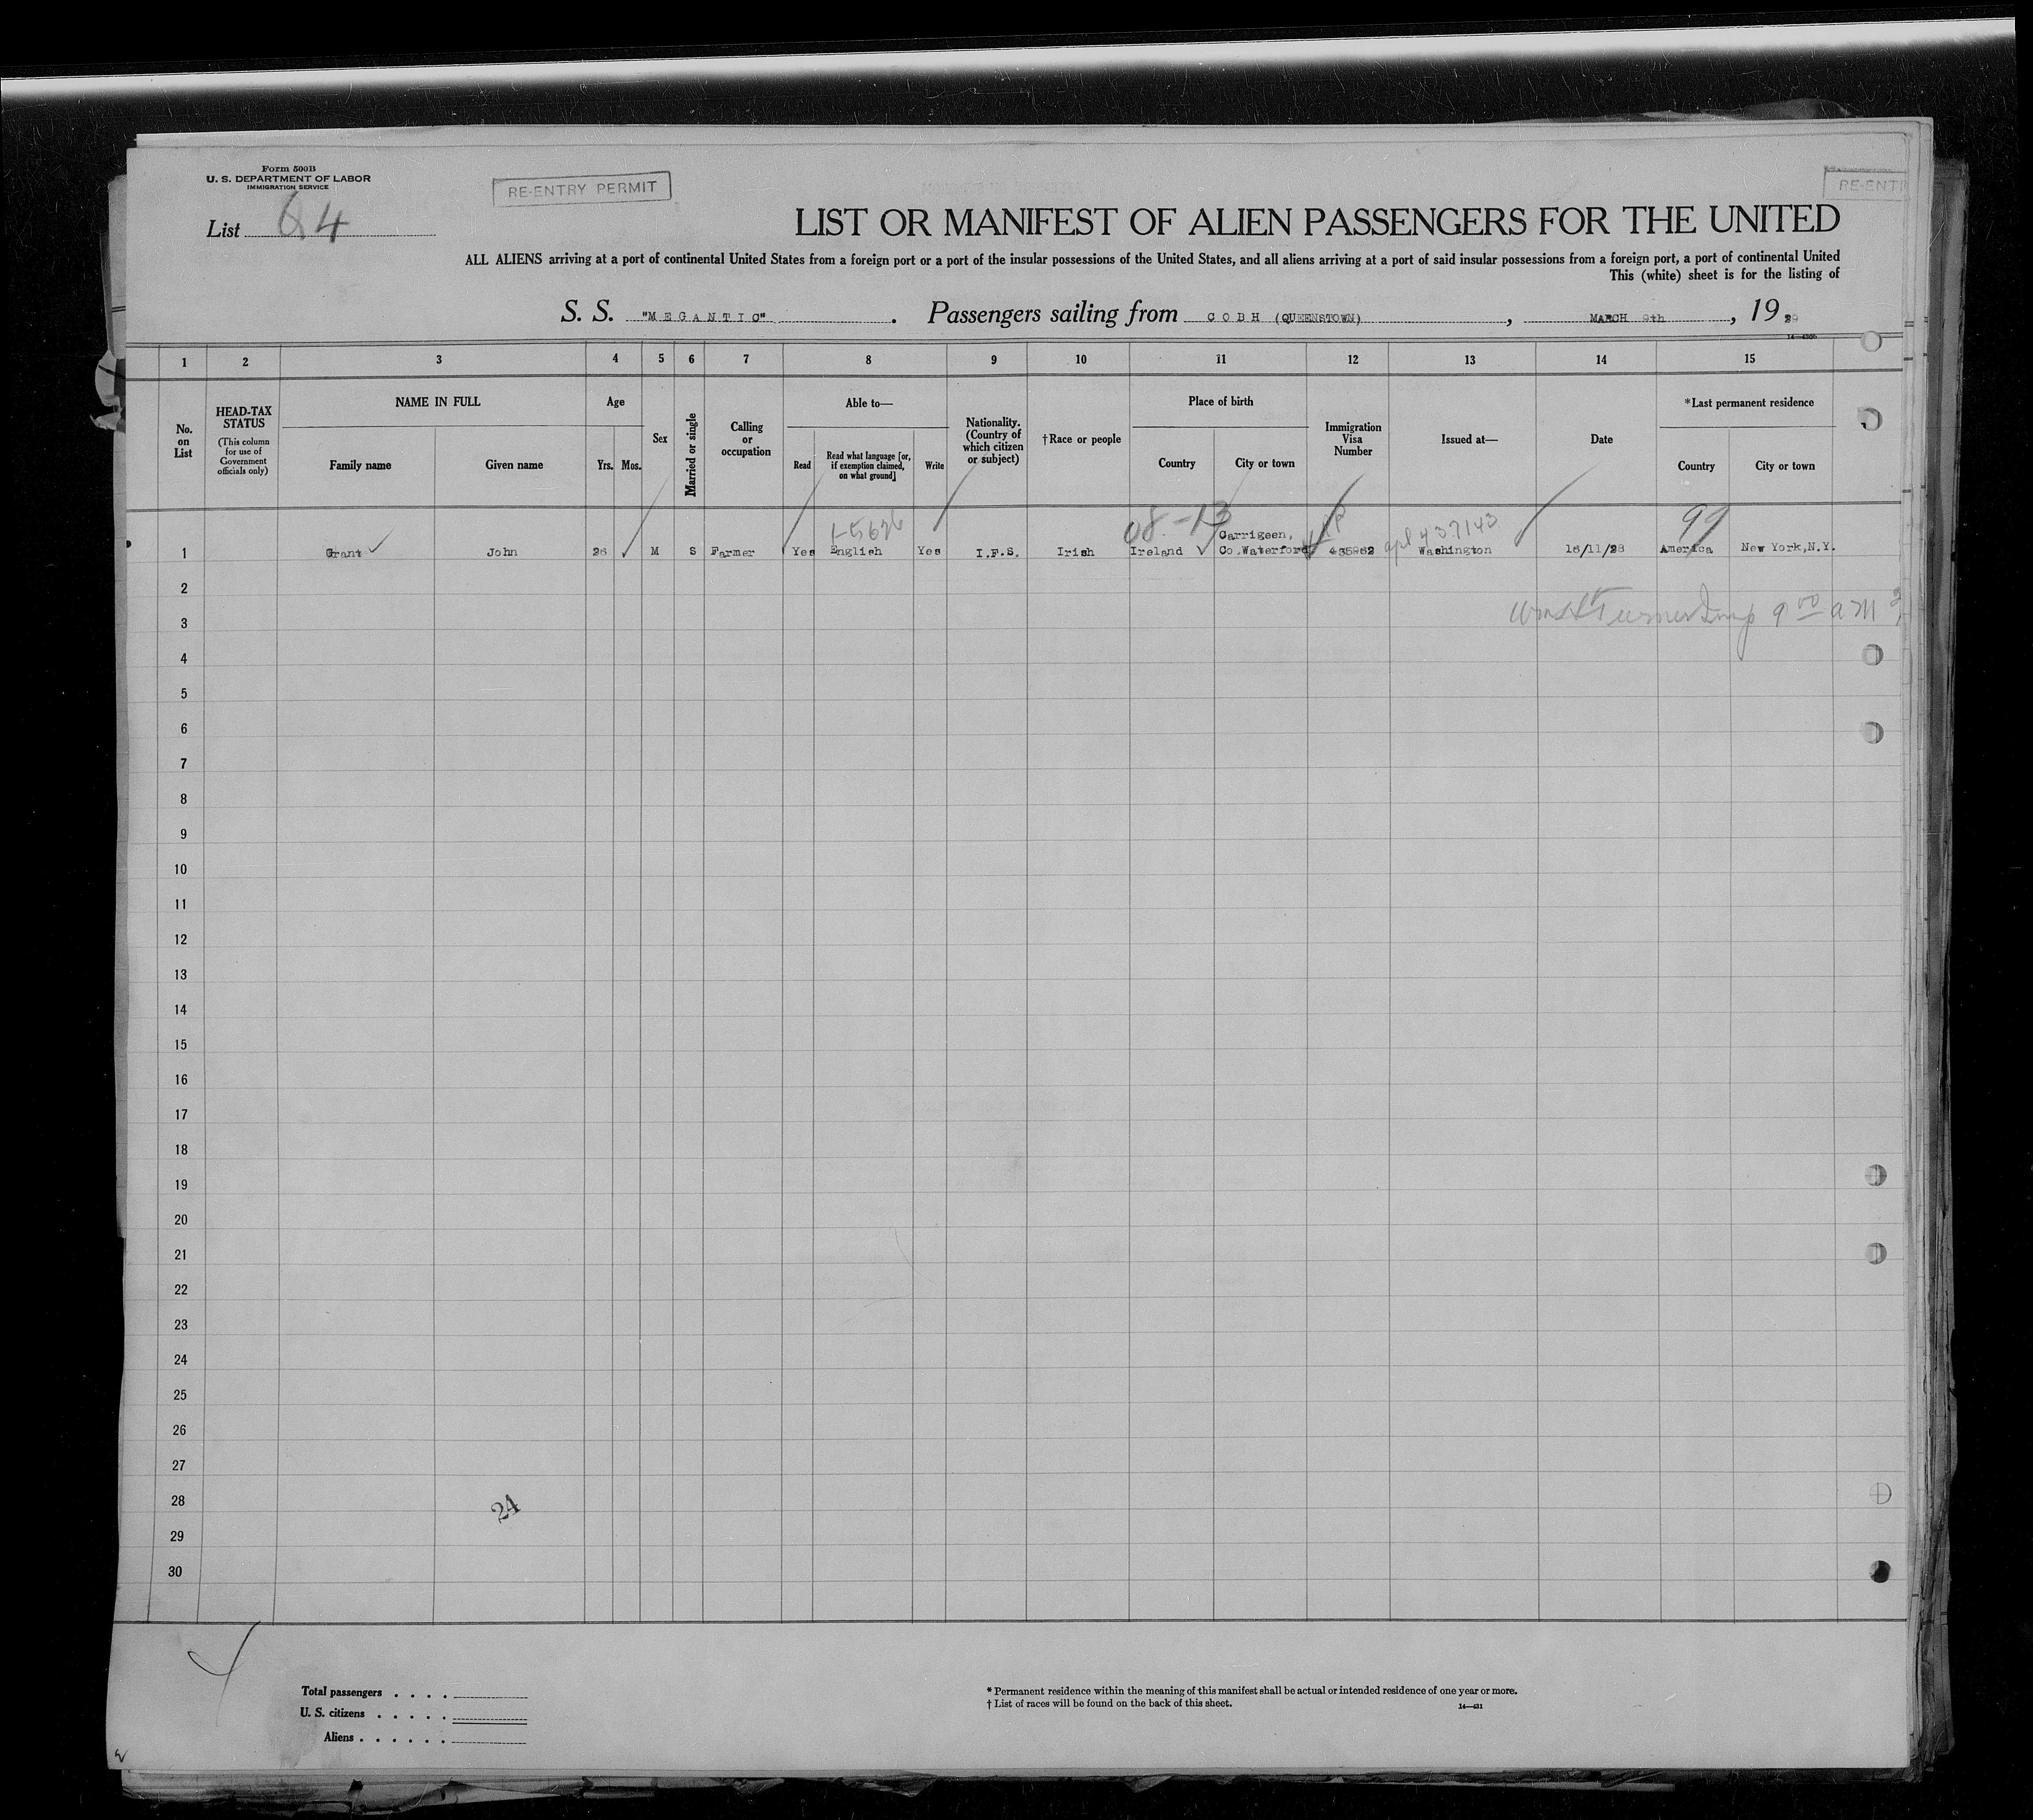 Form 500B
U. S. DEPARTMENT OF LABOR
IMMIGRATION SERVICE
RE-ENTRY PERMIT
RE-ENTR
List 4
LIST OR MANIFEST OF ALIEN PASSENGERS FOR THE UNITED
ALL ALIENS arriving at a port of continental United States from a foreign port or a port of the insular possessions of the United States, and all aliens arriving at a port of said insular possessions from a foreign port, a port of continental United
This (white) sheet is for the listing of
S. S. "MEGANTIC". Passengers sailing from COBH (QUEENSTOWN), MARCH 9th, 19 29
1 2 3 4 5 6 7 8 9 10 11 12 13 14 15
No. on List
HEAD-TAX STATUS
(This column for use of Government officials only)
NAME IN FULL
Family name Given name
Age
Yrs. Mos.
Sex
Married or single
Calling or occupation
Able to—
Read
Read what language [or, if exemption claimed, on what ground]
Write
Nationality. (Country of which citizen or subject)
†Race or people
Place of birth
Country City or town
Immigration Visa Number
Issued at—
Date
*Last permanent residence
Country City or town
08-13 99
1 Grant John 26 M S Farmer Yes English Yes I.F.S. Irish Ireland Carrigeen, Co.Waterford Washington 16/11/28 America New York,N.Y.
2
3
4
5
6
7
8
9
10
11
12
13
14
15
16
17
18
19
20
21
22
23
24
25
26
27
28
24
29
30
Total passengers . . . .
U. S. citizens . . . . .
Aliens . . . . . .
* Permanent residence within the meaning of this manifest shall be actual or intended residence of one year or more.
† List of races will be found on the back of this sheet.
14—431